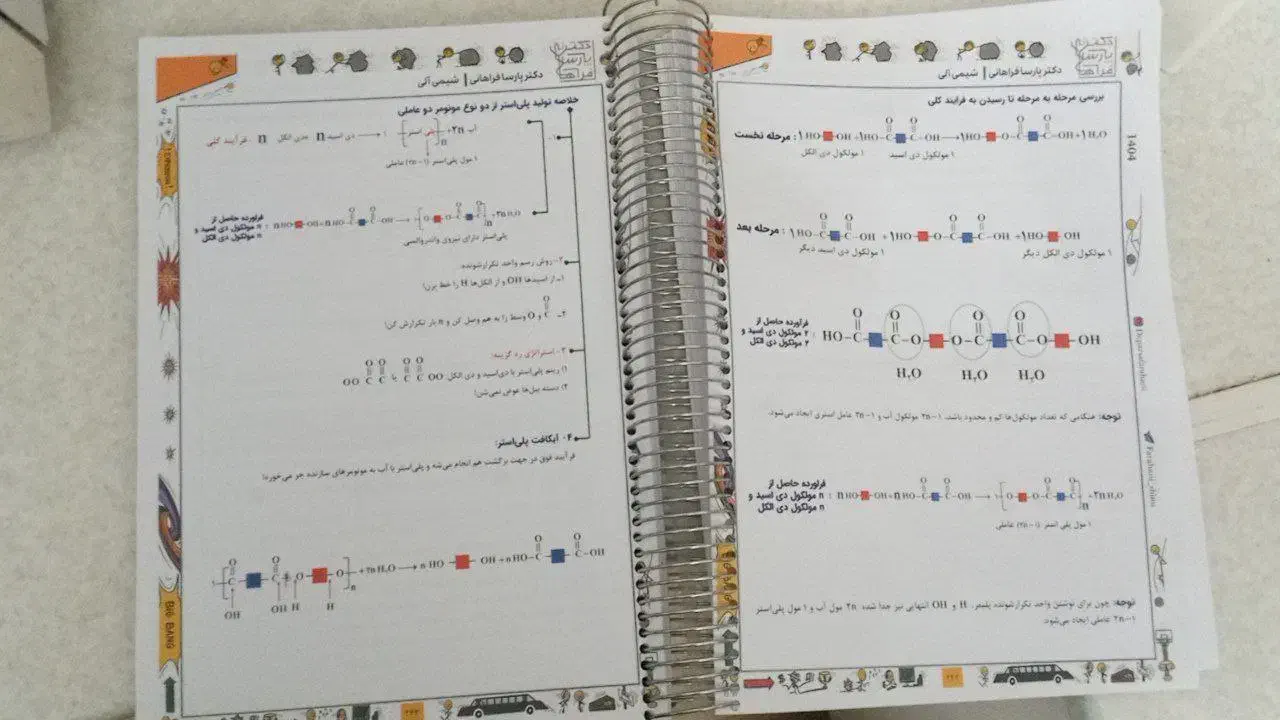 دکتر پارسا فراهانی | شیمی آلی
بررسی مرحله به مرحله تا رسیدن به فرایند کلی
مرحله نخست : ۱HO-■-OH + ۱HO-C(=O)-■-C(=O)-OH → ۱HO-■-O-C(=O)-■-C(=O)-OH + ۱H₂O
۱ مولکول دی الکل ۱ مولکول دی اسید
مرحله بعد : ۱HO-C(=O)-■-C(=O)-OH + ۱HO-■-O-C(=O)-■-C(=O)-OH + ۱HO-■-OH
۱ مولکول دی اسید دیگر ۱ مولکول دی الکل دیگر
فرآورده حاصل از
۲ مولکول دی اسید و
۲ مولکول دی الکل
: HO-C(=O)-■-C(=O)-O-■-O-C(=O)-■-C(=O)-O-■-OH
H₂O H₂O H₂O
توجه: هنگامی که تعداد مولکول‌ها کم و محدود باشد، ۲n-۱ مولکول آب و ۲n-۱ عامل استری ایجاد می‌شود.
فراورده حاصل از
n مولکول دی اسید و
n مولکول دی الکل
: n HO-■-OH + n HO-C(=O)-■-C(=O)-OH → ۱[O-■-O-C(=O)-■-C(=O)]n + ۲n H₂O
۱ مول پلی استر (۲n-۱) عاملی
توجه: چون برای نوشتن واحد تکرارشونده پلیمر، H و OH انتهایی نیز جدا شده ۲n مول آب و ۱ مول پلی‌استر
۲n-۱ عاملی ایجاد می‌شود.
۱۴۰۴
Drparsafarahani
Farahani_shimi
۲۴۲
دکتر پارسا فراهانی | شیمی آلی
خلاصه تولید پلی‌استر از دو نوع مونومر دو عاملی
۱- فرآیند کلی n دی الکل + n دی اسید → ۱[پلی استر]n + ۲n آب
۱ مول پلی‌استر (۲n-۱) عاملی
فراورده حاصل از
n مولکول دی اسید و
n مولکول دی الکل
: n HO-■-OH + n HO-C(=O)-■-C(=O)-OH → ۱[O-■-O-C(=O)-■-C(=O)]n + ۲n H₂O
پلی‌استر دارای نیروی واندروالسی
۲- روش رسم واحد تکرارشونده:
۱- از اسیدها OH و از الکل‌ها H را خط بزن!
۲- C(=O) و O وسط را به هم وصل کن و n بار تکرارش کن!
۳- استراتژی رد گزینه:
۱) ریتم پلی‌استر با دی‌اسید و دی الکل: OO C(=O) C(=O) یا C(=O) C(=O) OO
۲) دسته بیل‌ها عوض نمی‌شن!
۴- آبکافت پلی‌استر:
فرآیند فوق در جهت برگشت هم انجام می‌شه و پلی‌استر با آب به مونومرهای سازنده جر می‌خوره!
۱[C(=O)-■-C(=O)-O-■-O]n + ۲n H₂O → n HO-■-OH + n HO-C(=O)-■-C(=O)-OH
OH OH H H
BIG BANG
۲۴۳